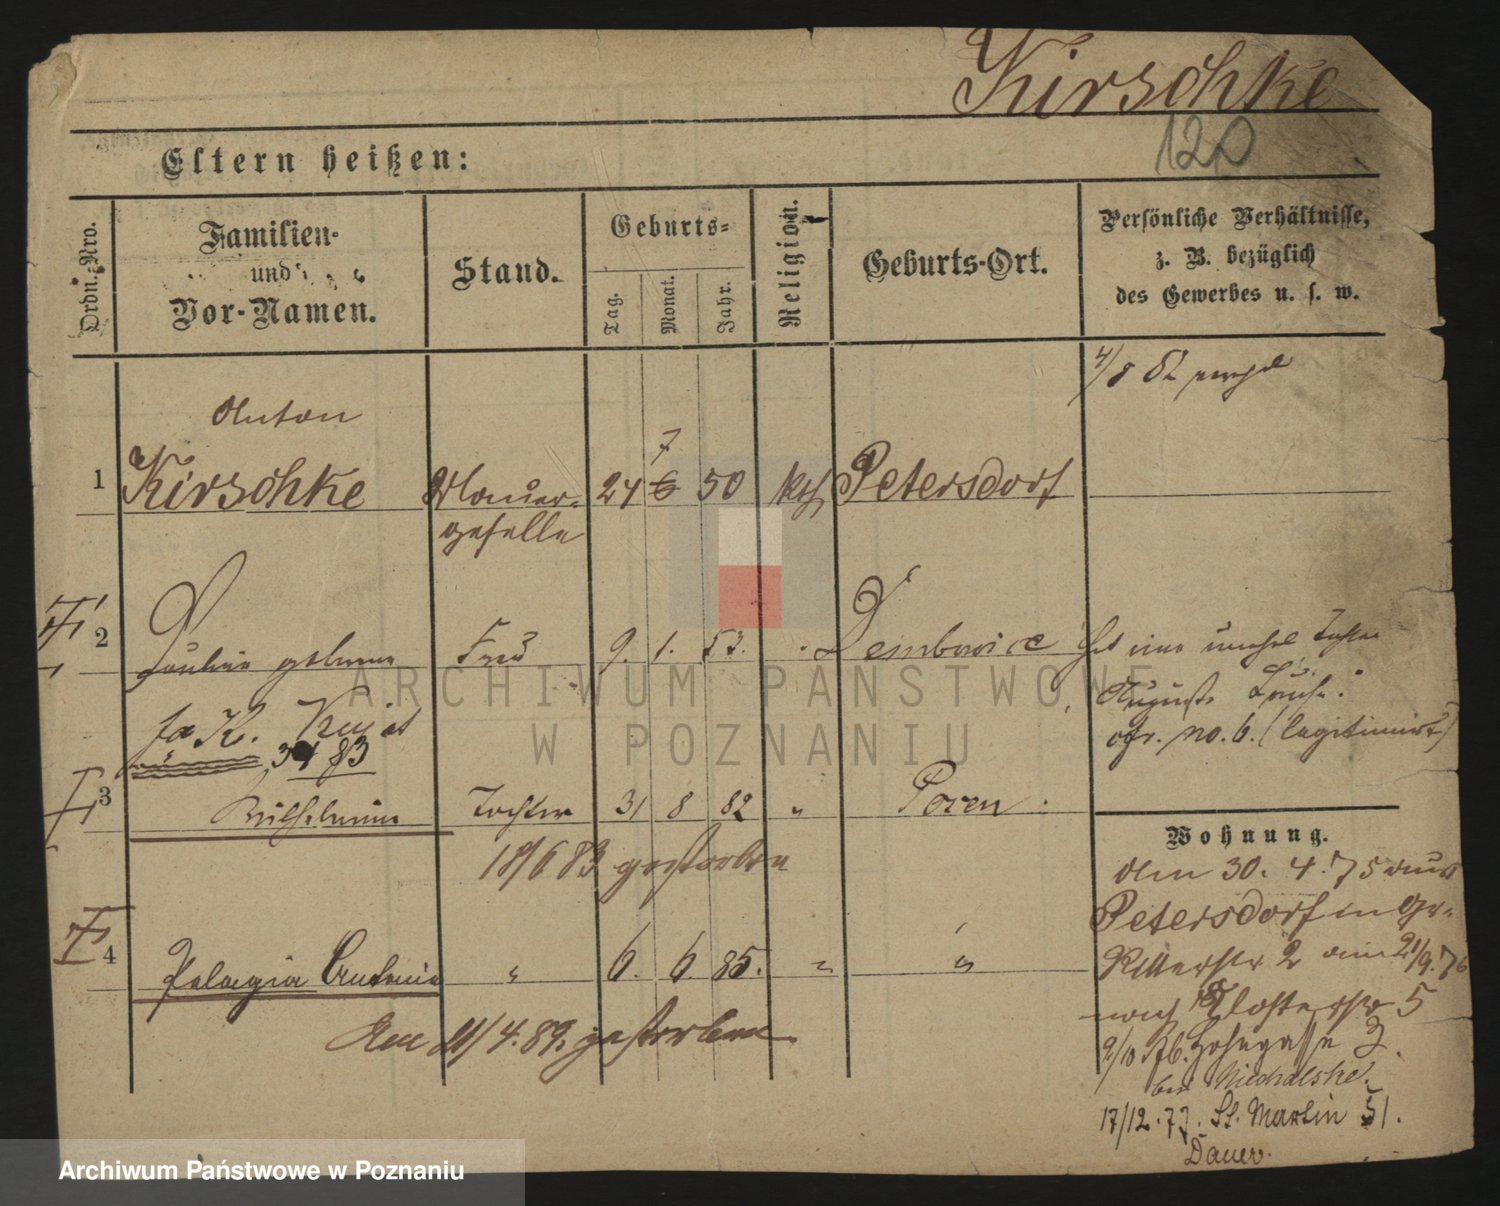 Kirschke
120
Eltern heißen:
Ordn. Nro.
Familien-
und
Vor-Namen.
Stand.
Geburts-
Tag.
Monat.
Jahr.
Religion.
Geburts-Ort.
Persönliche Verhältnisse,
z. B. bezüglich
des Gewerbes u. s. w.
4/8 82
Anton
7
1 Kirschke Maurer- 24 6 50 kth Petersdorf
geselle
2 Pauline geborene Frau 9. 1. 53. Dembowice Hat eine unehel Tochter
Auguste
K. Kujat
(legitimirt)
83
3 Wilhelmine Tochter 31 8 82 " Posen.
18/6 83 gestorben
Wohnung.
Am 30. 4. 75 aus
Petersdorf in Gr.
4 Pelagia Antonie " 6. 6. 85. " "
Ritterstr 2 am 21/9. 76
nach Klosterstr 5
Am 21/4. 89. gestorben
9/10 76. Hohegasse 3.
bei
17/12. 77. St. Martin 51.
Dauer.
ARCHIWUM PAŃSTWOWE
W POZNANIU
Archiwum Państwowe w Poznaniu